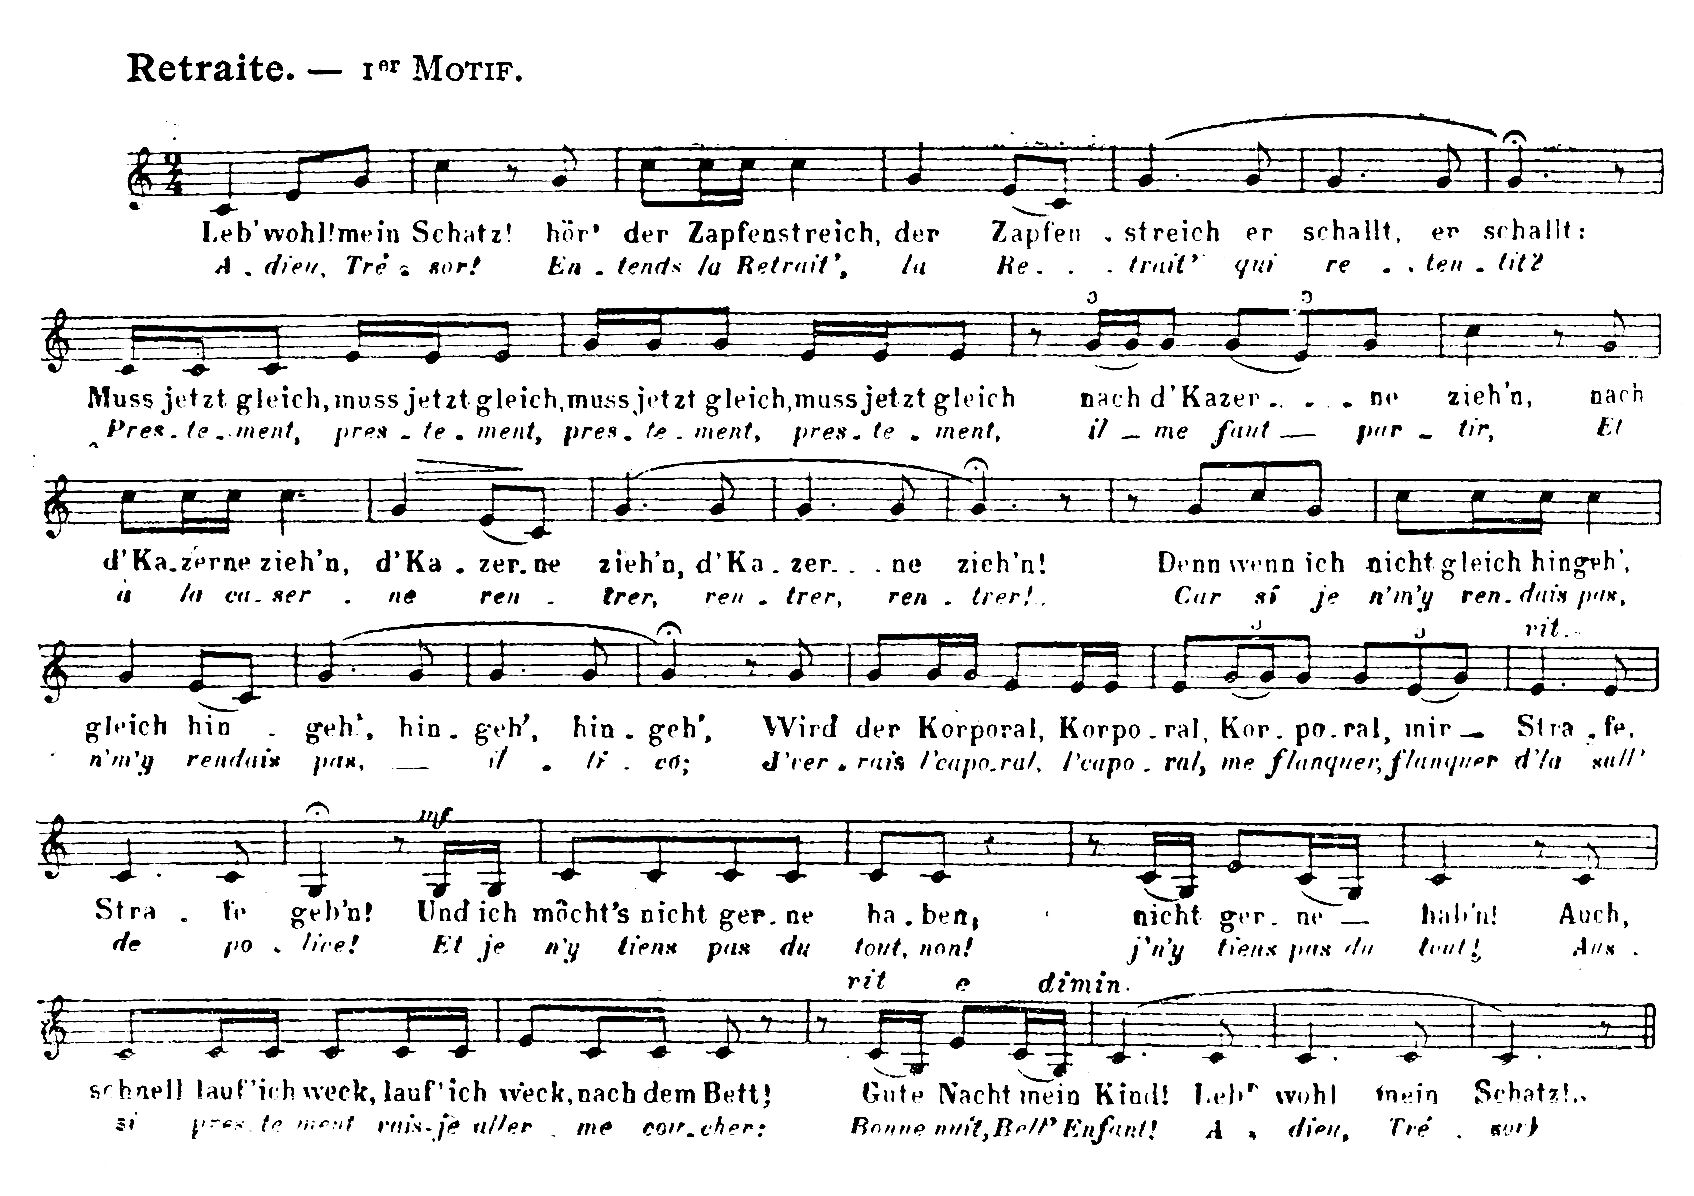 Retraite. — 1er MOTIF.
Leb'wohl! mein Schatz! hör' der Zapfenstreich, der Zapfen - streich er schallt, er schallt:
A - dieu, Tré - sor! En - tends la Retrait', la Re - - - trait' qui re - - ten - tit?
Muss jetzt gleich, muss jetzt gleich, muss jetzt gleich, muss jetzt gleich nach d'Kazer - - - ne zieh'n, nach
Pres - te - ment, pres - te - ment, pres - te - ment, pres - te - ment, il — me faut — par - tir, Et
d'Ka-zerne zieh'n, d'Ka - zer-ne zieh'n, d'Ka - zer - - - ne zieh'n! Denn wenn ich nicht gleich hingeh',
à la ca-ser - ne ren - trer, ren - trer, ren - trer!.. Car si je n'm'y ren-dais pas,
rit.
gleich hin - geh', hin - geh', hin - geh', Wird der Korporal, Korpo-ral, Kor - po-ral, mir — Stra - fe,
n'm'y rendais pas, — il - li - co; J'ver - rais l'capo-ral, l'capo - ral, me flanquer, flanquer d'la sall'
mf
Stra - fe geb'n! Und ich möcht's nicht ger-ne ha-ben, nicht ger-ne — hab'n! Auch,
de po - lice! Et je n'y tiens pas du tout, non! j'n'y tiens pas du tout! Aus -
rit e dimin.
schnell lauf'ich weck, lauf'ich weck, nach dem Bett! Gute Nacht mein Kind! Leb' wohl mein Schatz!..
si pres-te ment vais-je aller - me cou-cher: Bonne nuit, Bell' Enfant! A - dieu, Tré - sor!